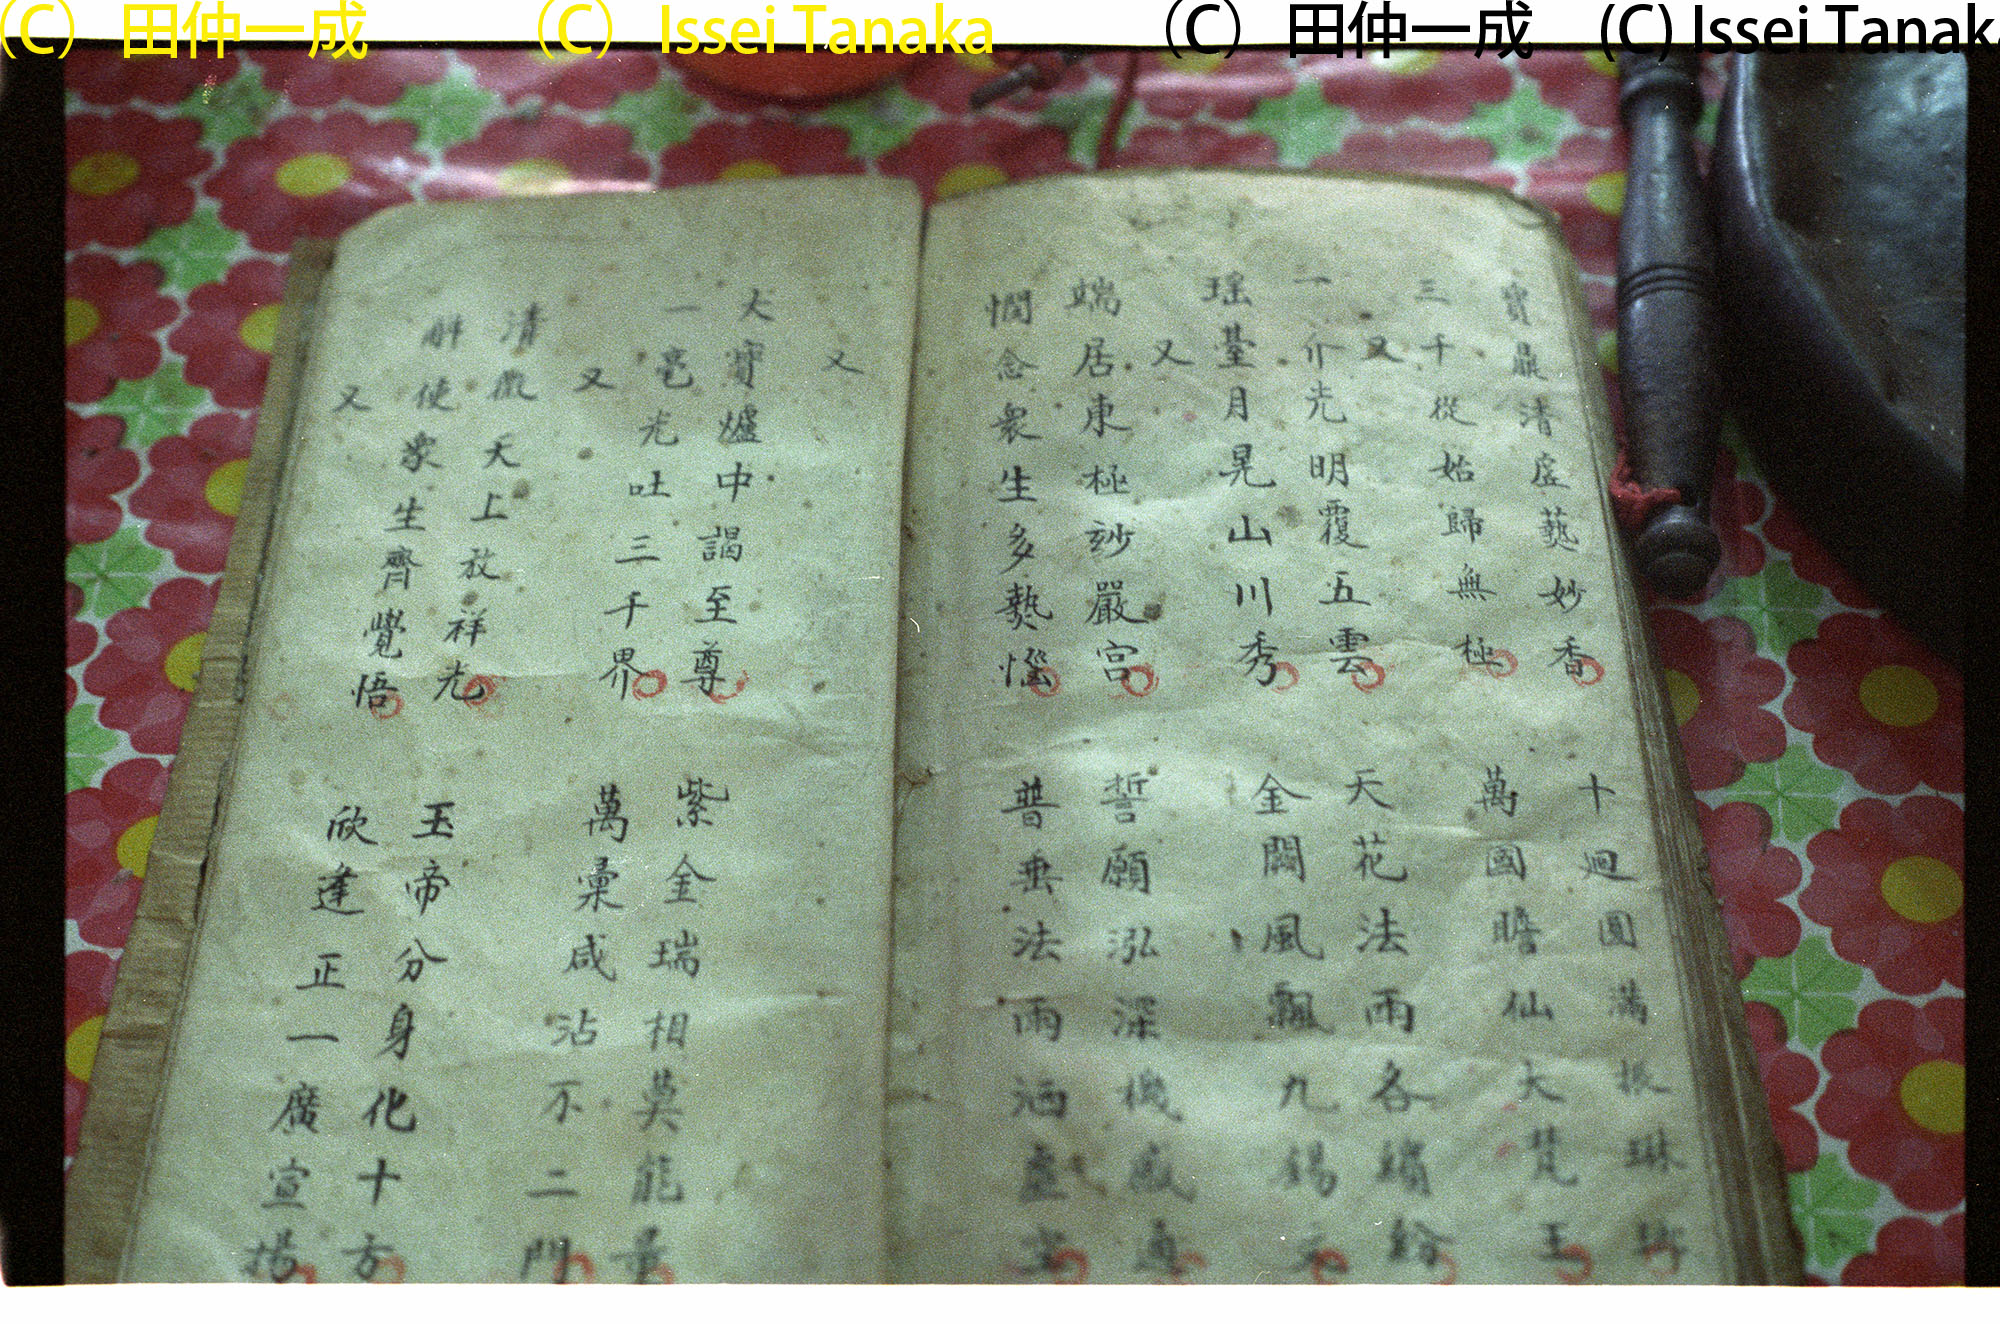 (C) 田仲一成 (C) Issei Tanaka (C) 田仲一成 (C) Issei Tanak
寳鼎清虛爇妙香 十廻圓滿振琳瑯
三千從始歸無極 萬國瞻仙大梵王
又
一介光明覆五雲 天花法雨各繽紛
瑶臺月晃山川秀 金闕風飄九錫文
又
端居東極玅嚴宮 誓願泓深機感通
憫念衆生多熱惱 普垂法雨洒虛空
又
大寳爐中謁至尊 紫金瑞相莫能量
一毫光吐三千界 萬彙咸沾不二門
又
清微天上放祥光 玉帝分身化十方
使衆生齊覺悟 欣逢正一廣宣揚
又